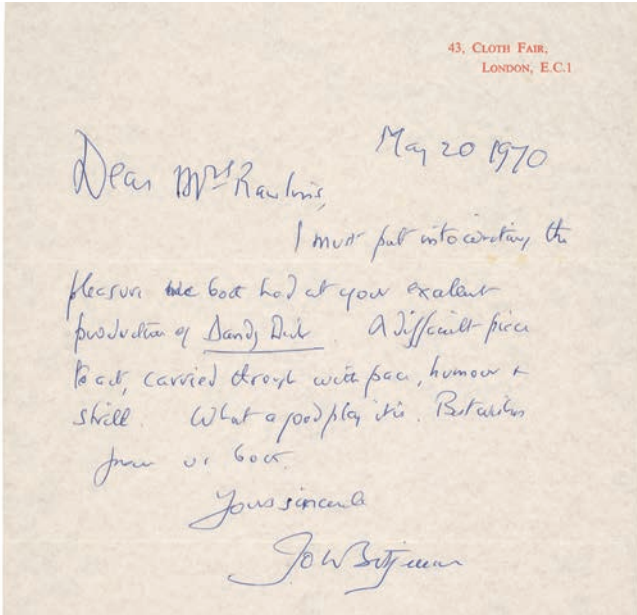 43, CLOTH FAIR,
LONDON, E.C.1
May 20 1970
Dear Mrs Rawlins,
I must put into writing the
pleasure we both had at your excellent
production of Dandy Dick. A difficult piece
to act, carried through with pace, humour +
skill. What a good play it is. Best wishes
from us both.
Yours sincerely
John Betjeman